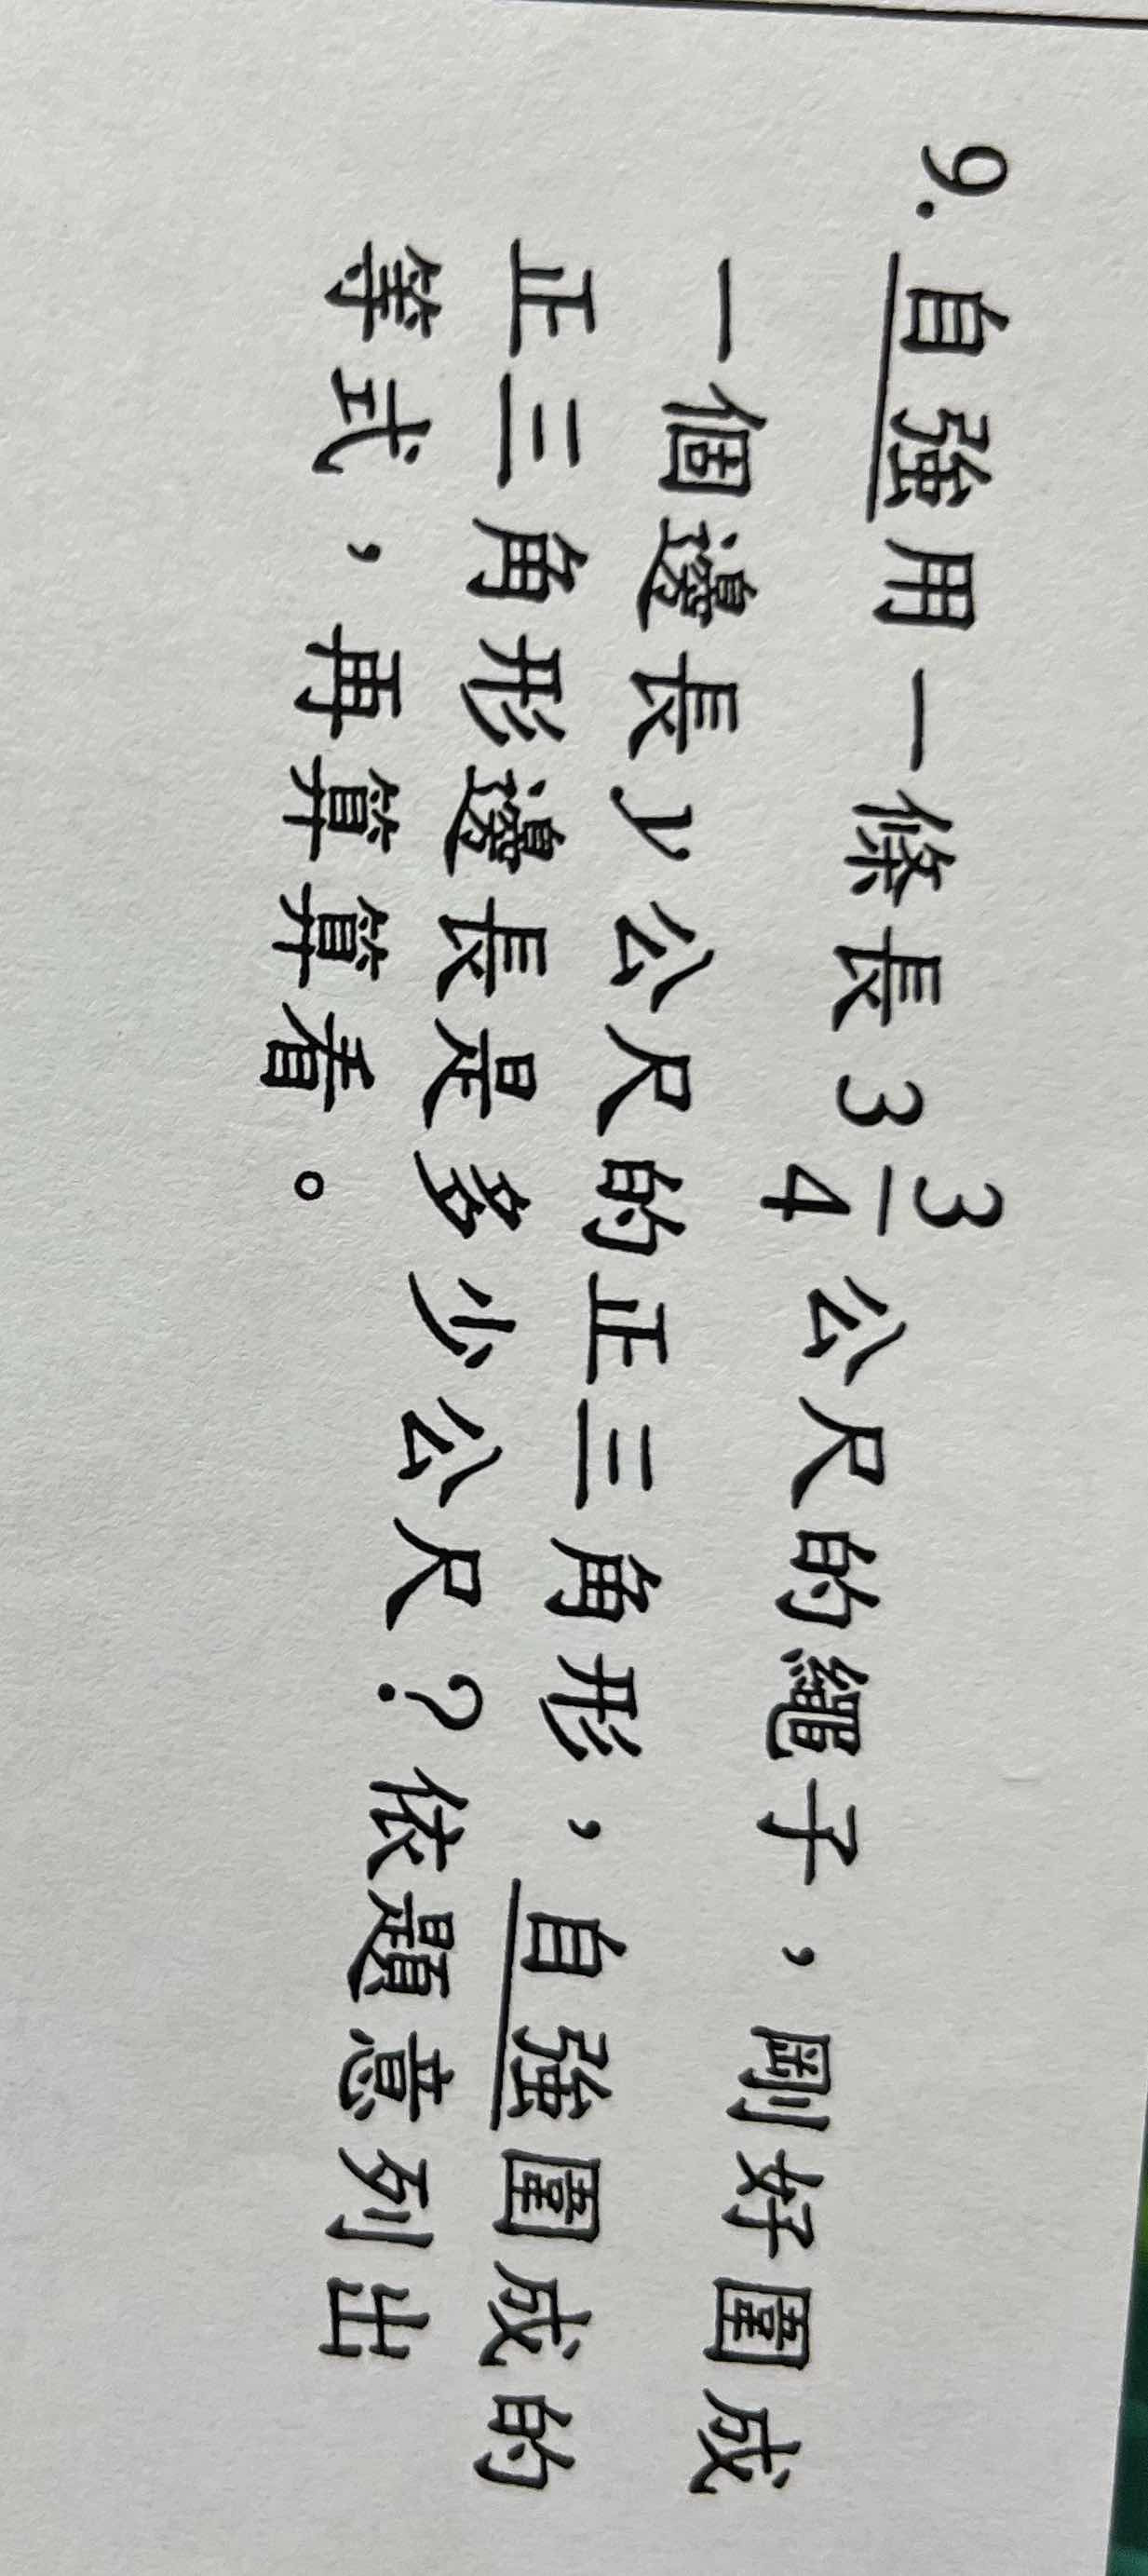 9. 自強用一條長 3 3/4 公尺的繩子，剛好圍成
一個邊長 y 公尺的正三角形，自強圍成的
正三角形邊長是多少公尺？依題意列出
等式，再算算看。